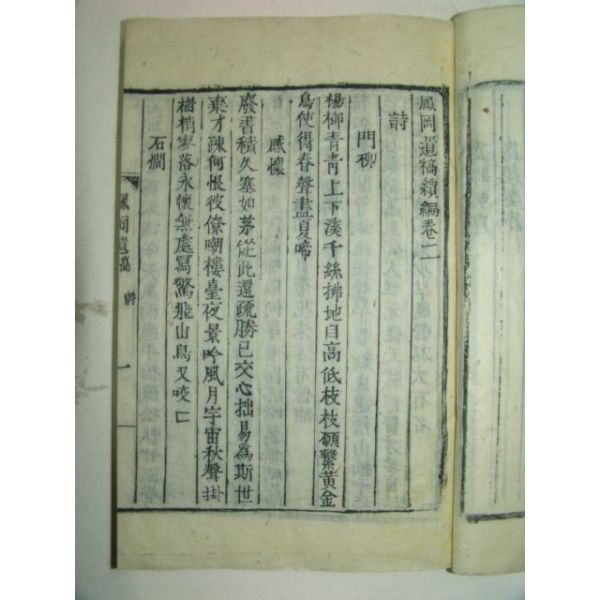 鳳岡遺稿續編卷二
詩
門柳
楊柳青青上下溪千絲拂地自高低枝枝願繫黃金
鳥使得春聲盡夏啼
感懷
廢書積久塞如茅從此還疏勝已交心拙易爲斯世
棄才踈何恨彼僚嘲樓臺夜景吟風月宇宙秋聲掛
樹梢寥落永懷無處寫驚飛山鳥又咬
石澗
鳳岡遺稿
一